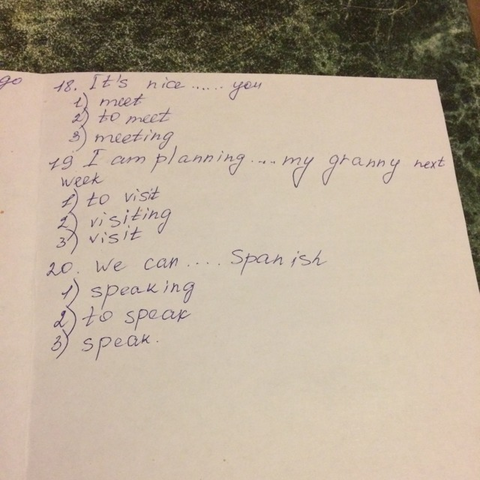 go
18. It's nice ..... you
1) meet
2) to meet
3) meeting
19 I am planning .... my granny next
week
1) to visit
2) visiting
3) visit
20. we can .... Spanish
1) speaking
2) to speak
3) speak.